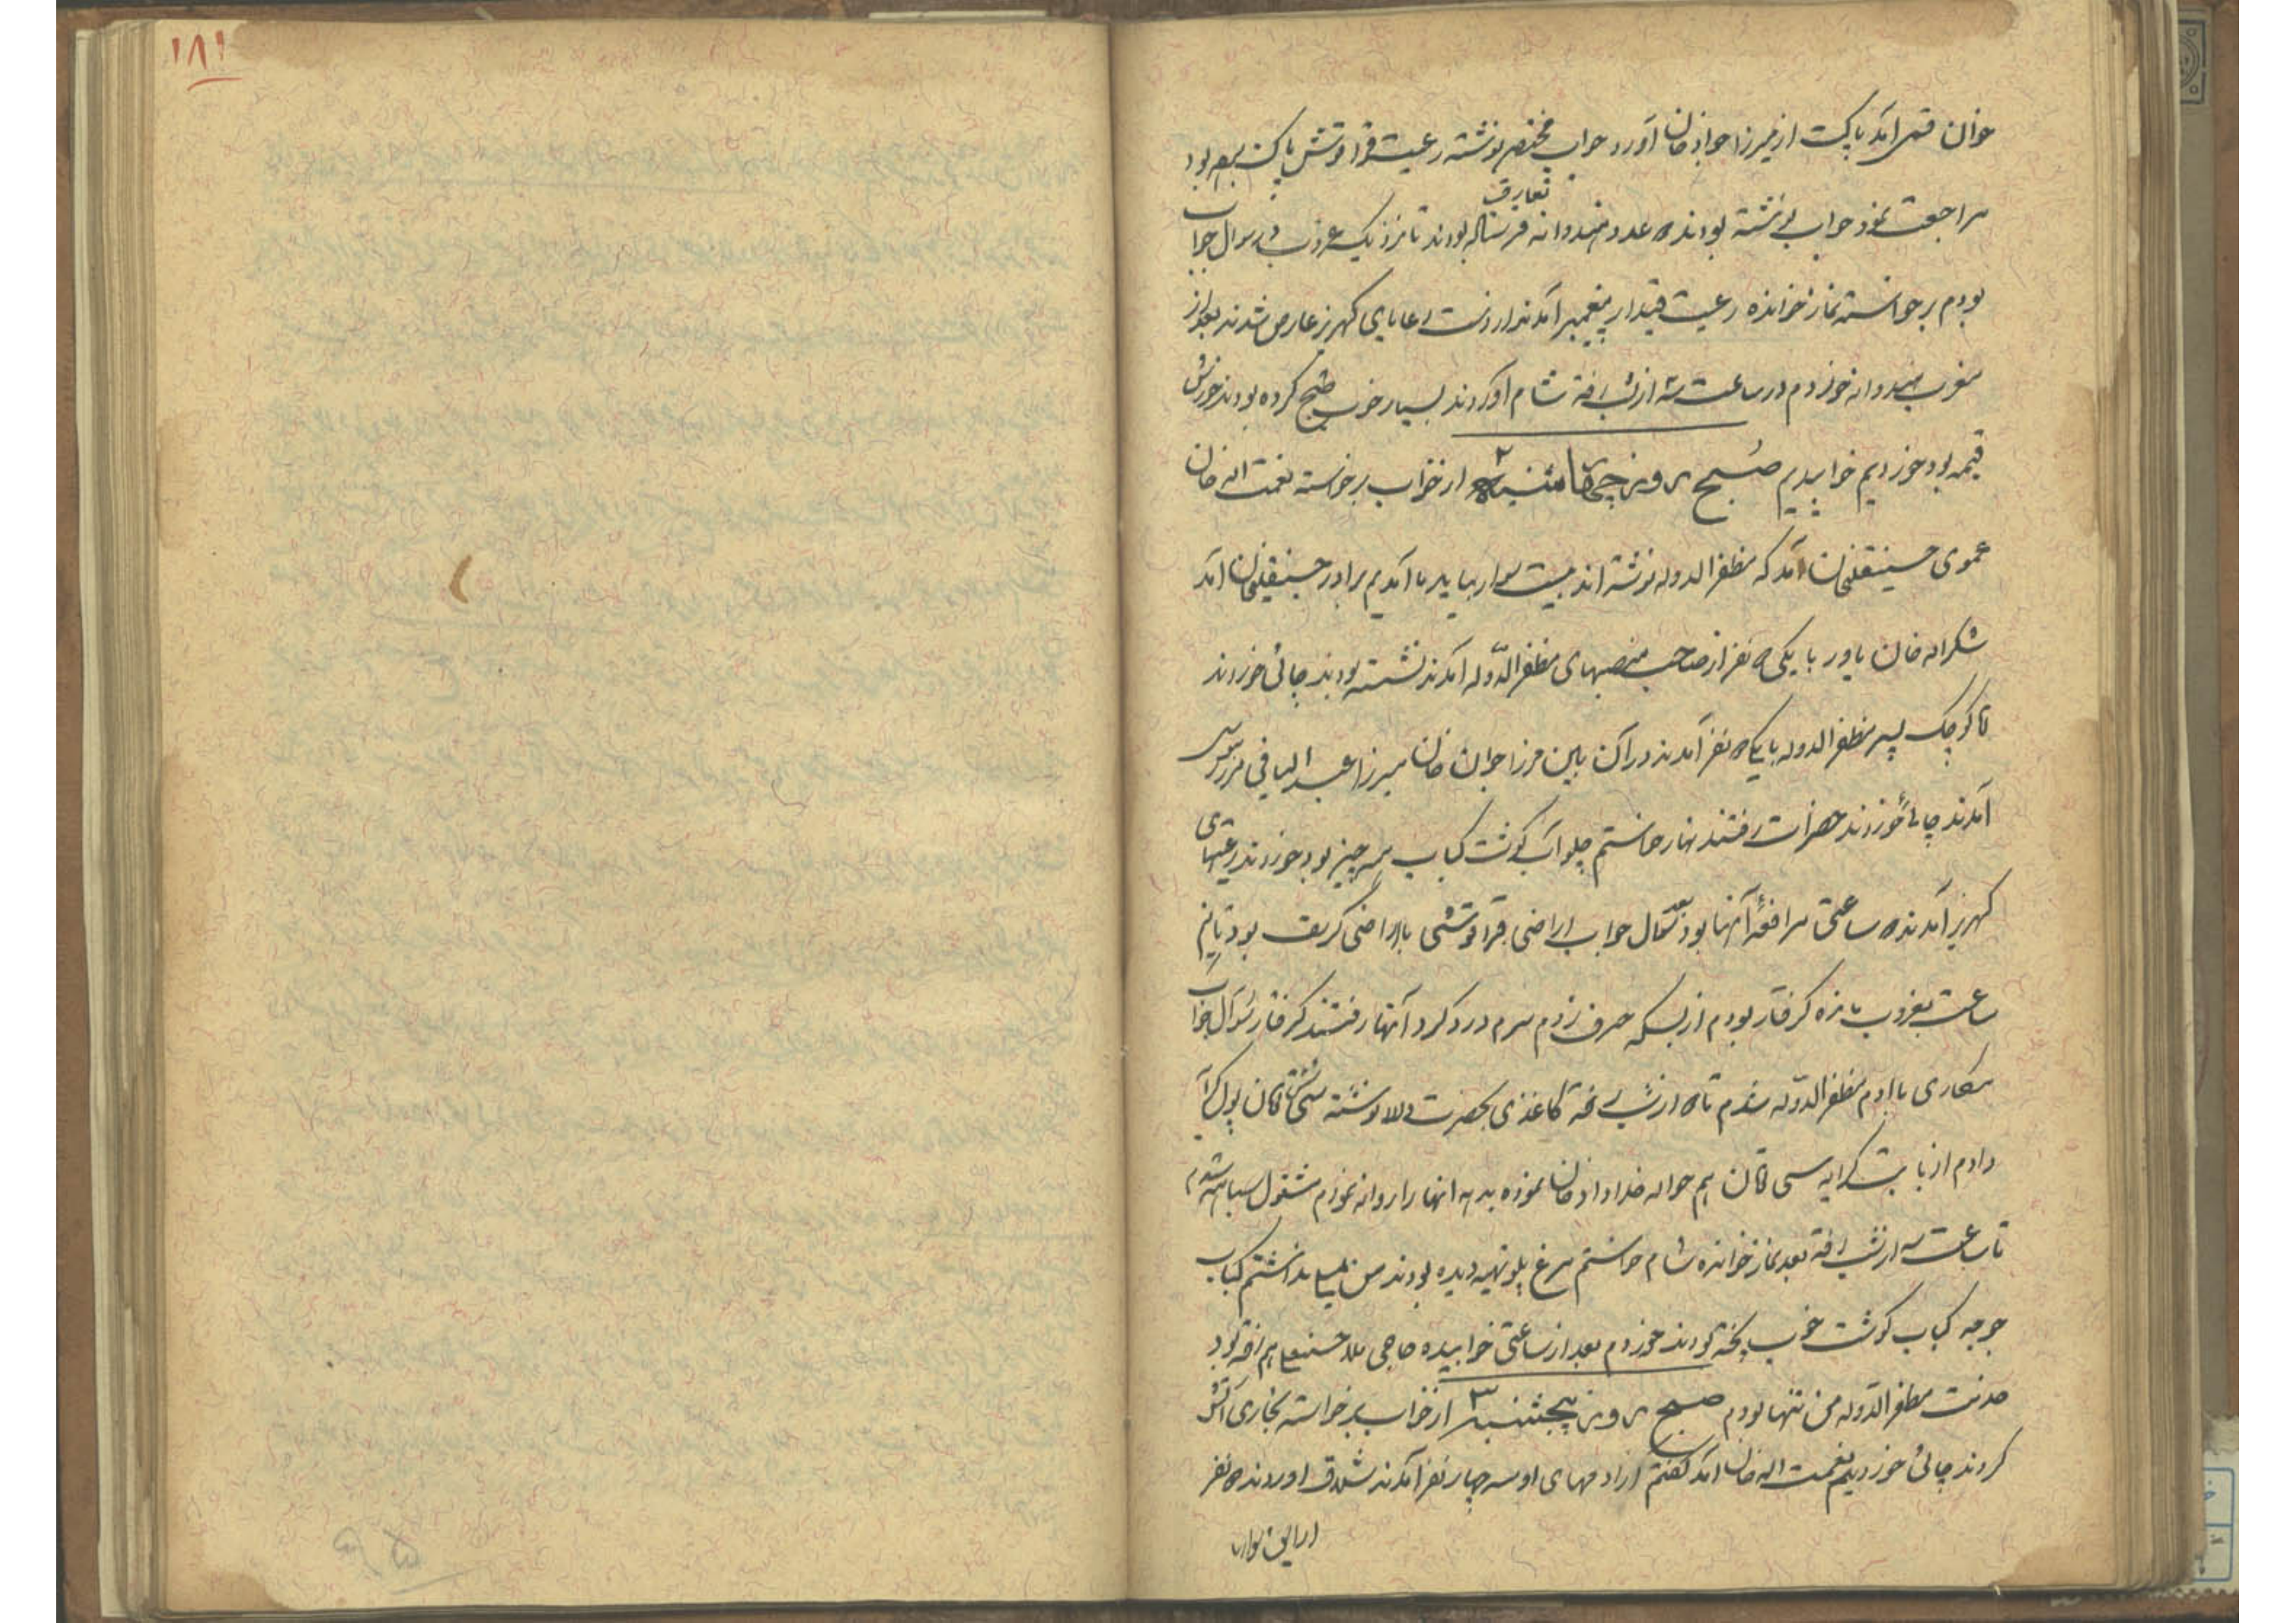 ۱۸۱
خوان قمی آمد پاکت از میرزا جواد خان آورد جواب مختصر نوشته رعیت قراقوتش پاکت بود
تعارف
مراجعت نمود جواب نوشته بودند ۵ عدد هندوانه فرستاده بودند تا نزدیک غروب در سوال جواب
بودم برخواسته نماز خوانده رعیت قیدار پیغمبر آمدند از دست رعایای کهریز عارض شدند بعد از
مغرب هندوانه خوردم در ساعت سه از شب رفته شام آوردند بسیار خوب طبخ کرده بودند خورش
قیمه بود خوردیم خوابیدیم صبح روز چهارشنبه ۲ از خواب برخواسته نعمت اله خان
عموی حسینقلیخان آمد که مظفرالدوله نوشته اند بیست سوار بیاید ما آمدیم برادر حسینقلیخان آمد
شکراله خان یاور با یکی ۵ نفر از صاحب منصبهای مظفرالدّوله آمدند نشسته بودند چائی خوردند
آقا کوچک پسر مظفرالدوله با یک ۵ نفر آمدند در آن بین میرزا جواد خان میرزا عبدالباقی
آمدند چائی خوردند حضرات رفتند نهار خواستم چلو آب گوشت کباب همه چیز بود خوردند رعیتهای
کهریز آمدند ۵ ساعتی مرافعهٔ آنها بود بعد سؤال جواب اراضی قراقوتشی با اراضی کریف بود تا نیم
ساعت بغروب مانده گرفتار بودم از بسکه حرف زدم سرم درد کرد آنها رفتند گرفتار سؤال جواب
مکاری با آدم مظفرالدّوله شدم تا ۵ از شب رفته کاغذی بحضرت والا نوشته سی تومان پول کرایه
دادم از بابت کرایه سی تومان هم حواله خداداد خان نموده بدهد آنها را روانه نمودم مشغول سیاهه شدم
تا ساعت سه از شب رفته بعد نماز خوانده شام خواستم مرغ پلو تهیه دیده بودند من میل نداشتم کباب
جوجه کباب گوشت خوب پخته بودند خوردم بعد از ساعتی خوابیده حاجی ملا حسنعلی هم رفته بود
خدمت مظفرالدّوله من تنها بودم صبح روز پنجشنبه ۳ از خواب برخواسته بخاری آتش
کردند چائی خوردیم نعمت اله خان آمد گفتم از آدمهای او سه چهار نفر آمدند شلاق آوردند ۵ نفر